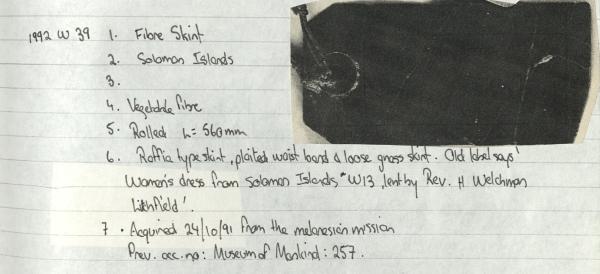 1992 W 39 1. Fibre Skirt
2. Solomon Islands
3.
4. Vegetable fibre
5. Rolled L = 560mm
6. Raffia type skirt, plaited waist band & loose grass skirt. Old label says '
Women's dress from Solomon Islands W13, lent by Rev. H Welchman
Lichfield'.
7. Acquired 24/10/91 from the melanesian mission
Prev. acc. no: Museum of Mankind: 257.